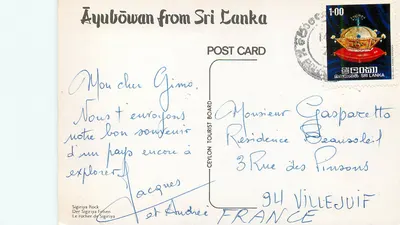 Āyubōwan from Sri Lanka
POST CARD
1·00
SRI LANKA
CEYLON TOURIST BOARD
Mon cher Gimo,
Nous t'envoyons
notre bon souvenir
d'un pays encore à
explorer.
Jacques
et Andrée
Monsieur Gasparetto
Résidence Beausoleil
3 Rue des Pinsons
94 VILLEJUIF
FRANCE
Sigiriya Rock
Der Sigiriya Felsen
Le Rocher de Sigiriya